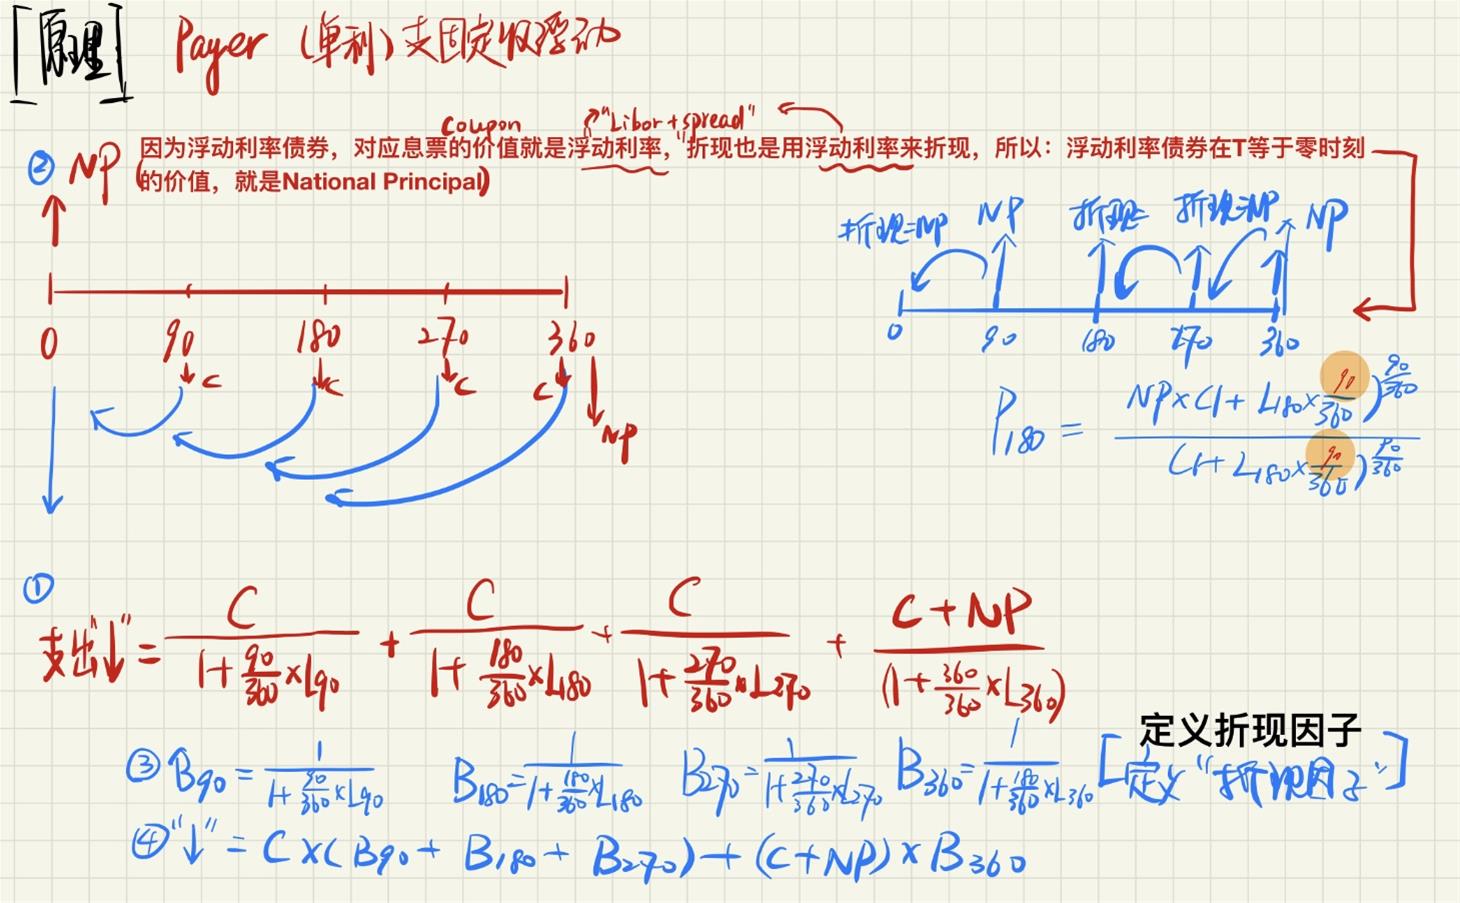 [原理] Payer (单利)支固定收浮动
coupon "Libor+spread"
② NP 因为浮动利率债券，对应息票的价值就是浮动利率，折现也是用浮动利率来折现，所以：浮动利率债券在T等于零时刻
(的价值，就是National Principal)
折现=NP NP 折现= 折现=NP NP
0 90 180 270 360
0 90 180 270 360
C C C C
NP
P180 = NP×(1+L180×90/360)^90/360
(1+L180×90/360)^90/360
①
支出"↓" = C/(1+90/360×L90) + C/(1+180/360×L180) + C/(1+270/360×L270) + C+NP/(1+360/360×L360)
定义折现因子
③ B90 = 1/(1+90/360×L90) B180=1/(1+180/360×L180) B270=1/(1+270/360×L270) B360=1/(1+180/360×L360) [定义"折现因子"]
④ "↓" = C×(B90+B180+B270)+(C+NP)×B360